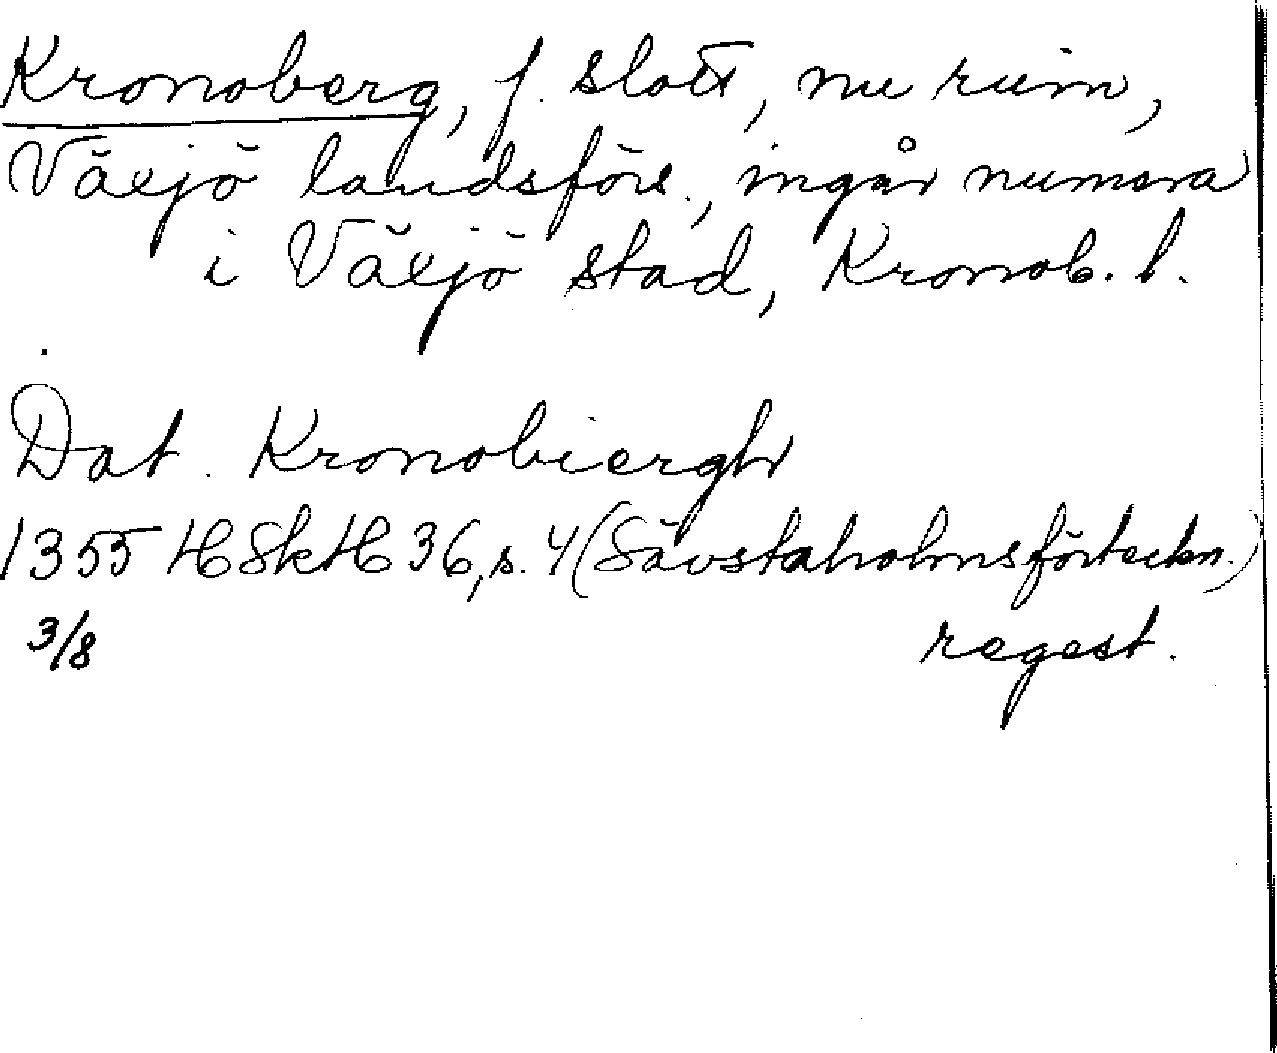 Kronoberg, f. slott, nu ruin,
Växjö landsförs., ingår numera
i Växjö stad, Kronob. l.
Dat. Kronobiergh
1355 HSkH 36, s. 4 (Sävstaholmsförteckn.)
3/8 regest.